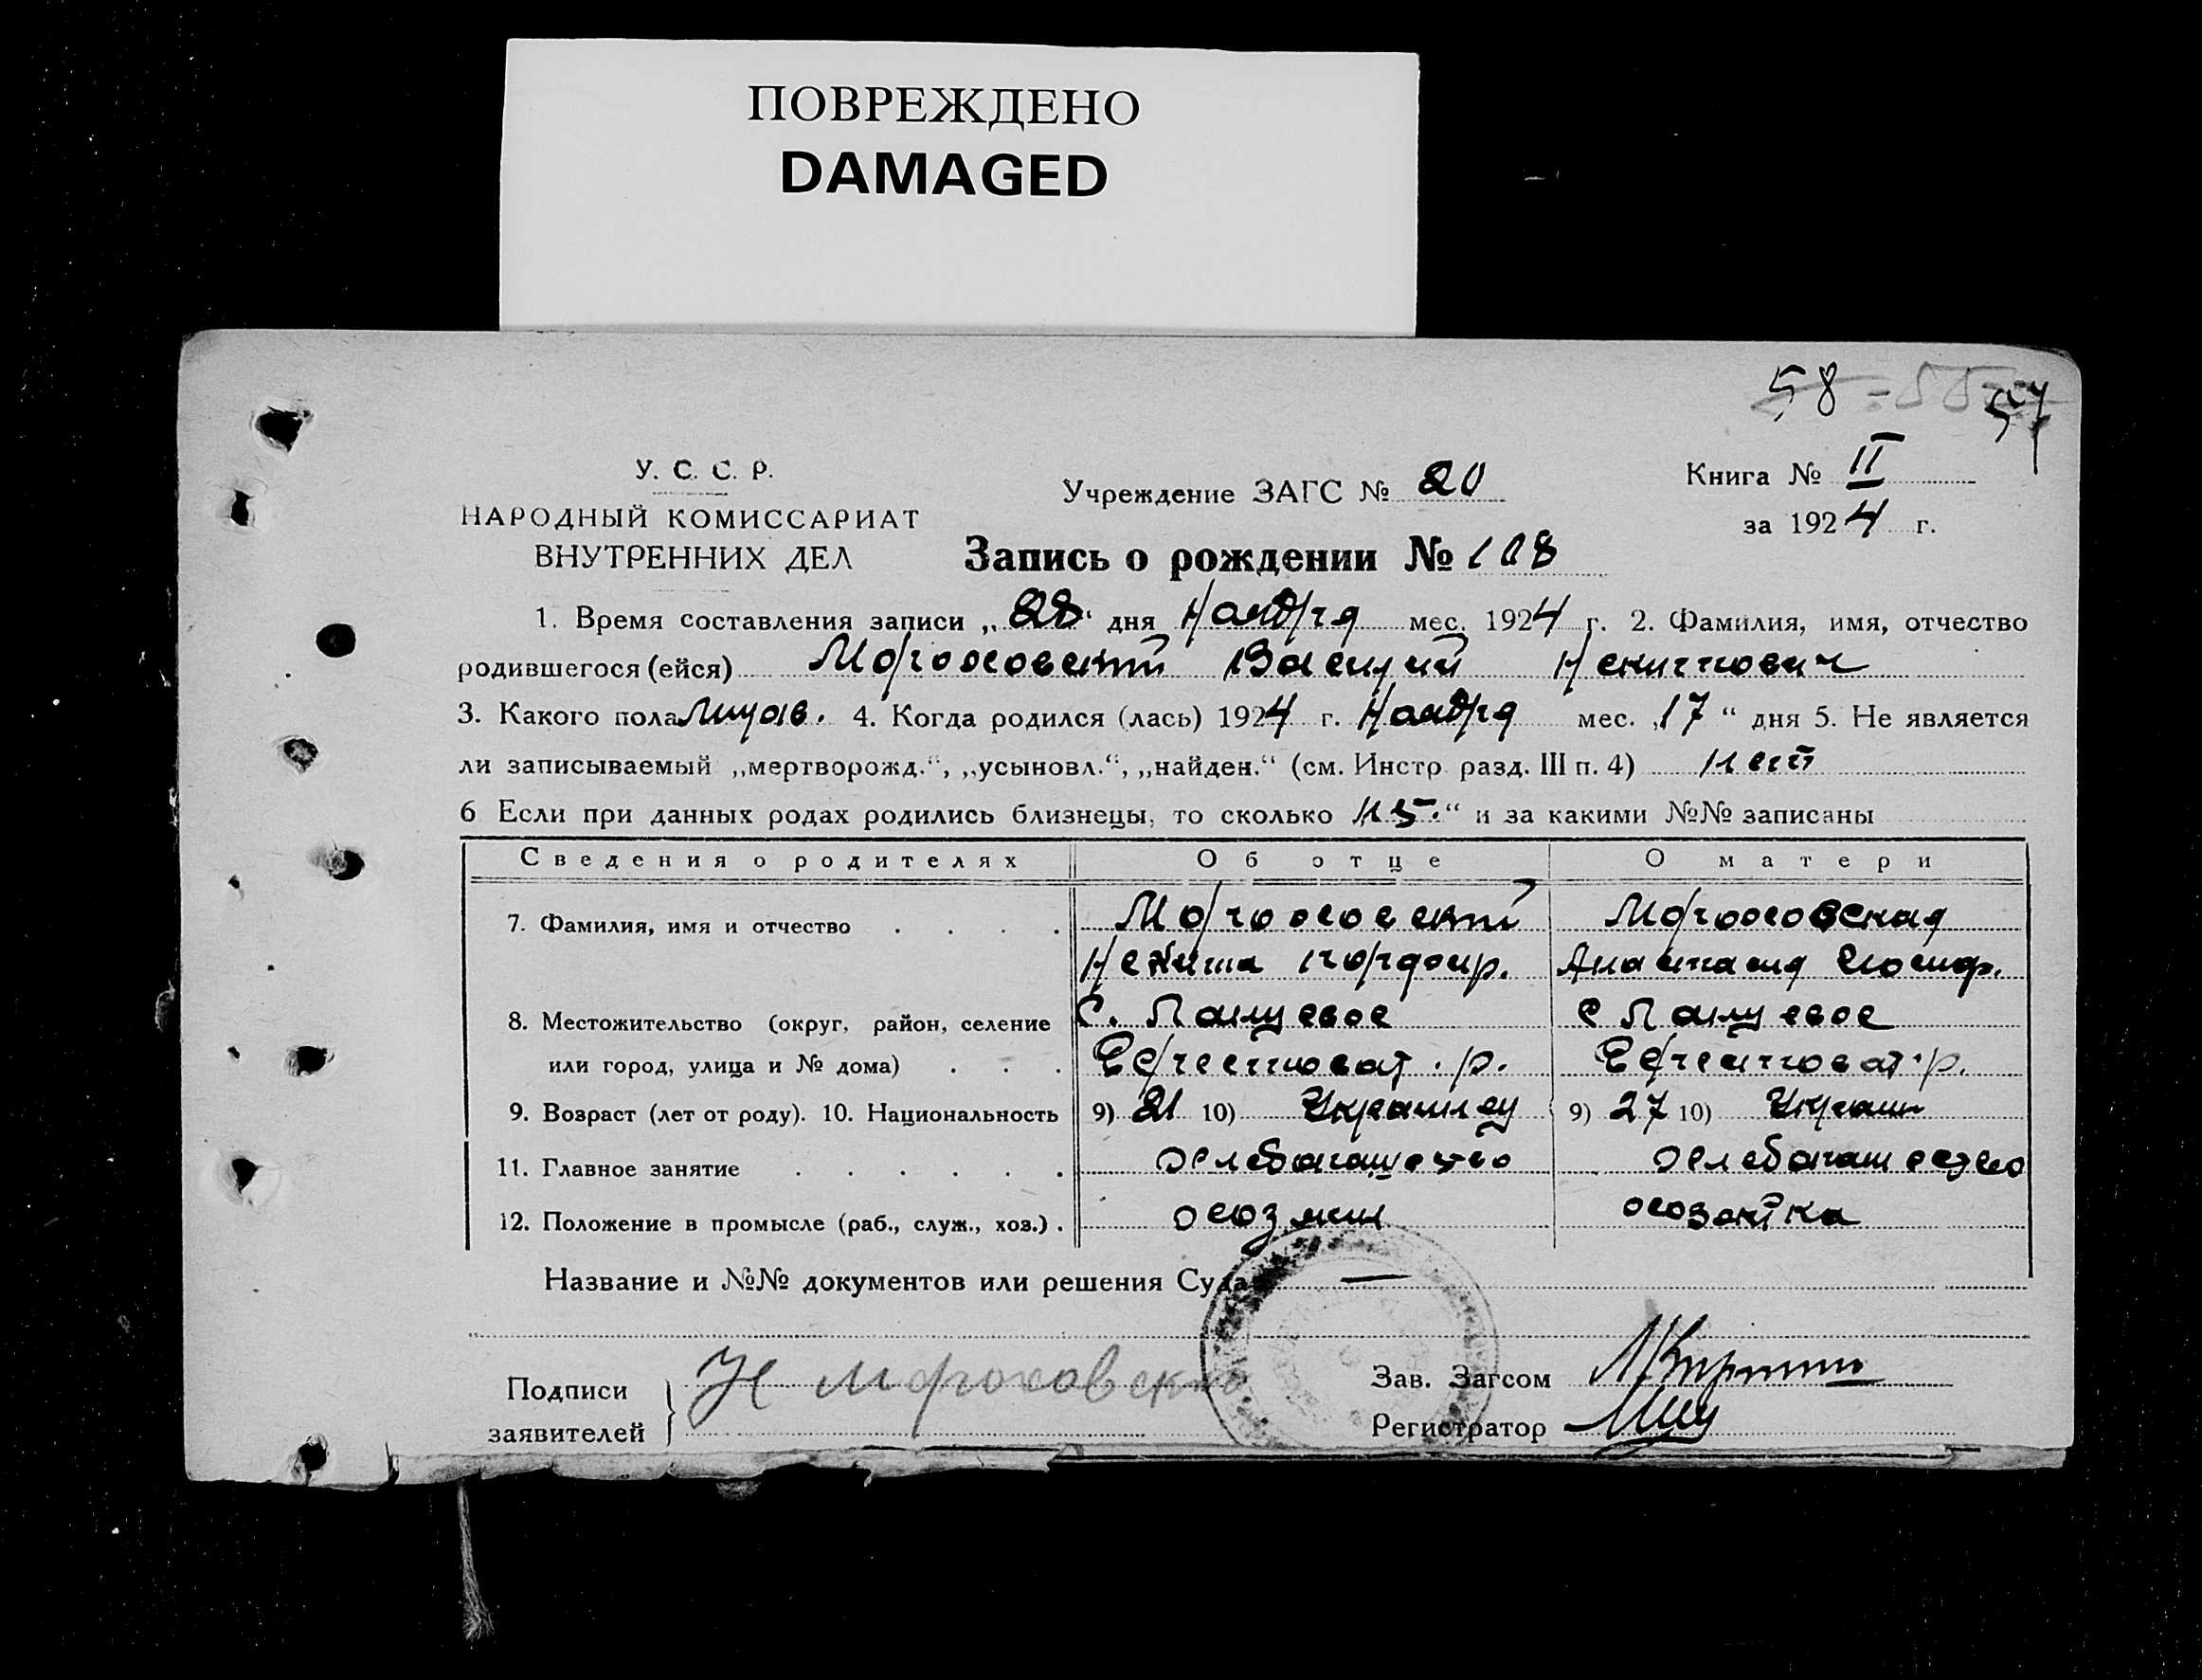 ПОВРЕЖДЕНО
DAMAGED
58 57
У. С. С. Р.
НАРОДНЫЙ КОМИССАРИАТ
ВНУТРЕННИХ ДЕЛ
Учреждение ЗАГС № 20
Книга № II
за 1924 г.
Запись о рождении № 108
1. Время составления записи „28“ дня Ноября мес. 1924 г. 2. Фамилия, имя, отчество
родившегося (ейся) Мороховский Василий Никитович
3. Какого пола 4. Когда родился (лась) 1924 г. Ноября мес. „17“ дня 5. Не является
ли записываемый „мертворожд.“, „усыновл.“, „найден.“ (см. Инстр. разд. III п. 4) нет
6 Если при данных родах родились близнецы, то сколько “ и за какими №№ записаны
Сведения о родителях Об отце О матери
7. Фамилия, имя и отчество . . . . Мороховский Мороховская
Никита Анастасия Иосиф.
8. Местожительство (округ, район, селение С. с
или город, улица и № дома) . . . Берестоват. р. Берестоват. р.
9. Возраст (лет от роду). 10. Национальность 9) 21 10) Украинец 9) 27 10) Украин
11. Главное занятие . . . . . . хлебопашество хлебопашество
12. Положение в промысле (раб., служ., хоз.) . хозяин хозяйка
Название и №№ документов или решения Суда —
Подписи
заявителей
Н Мороховский
Зав. Загсом
Регистратор